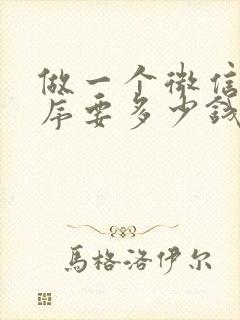 做一个微信
序要多少钱
馬格洛伊尔